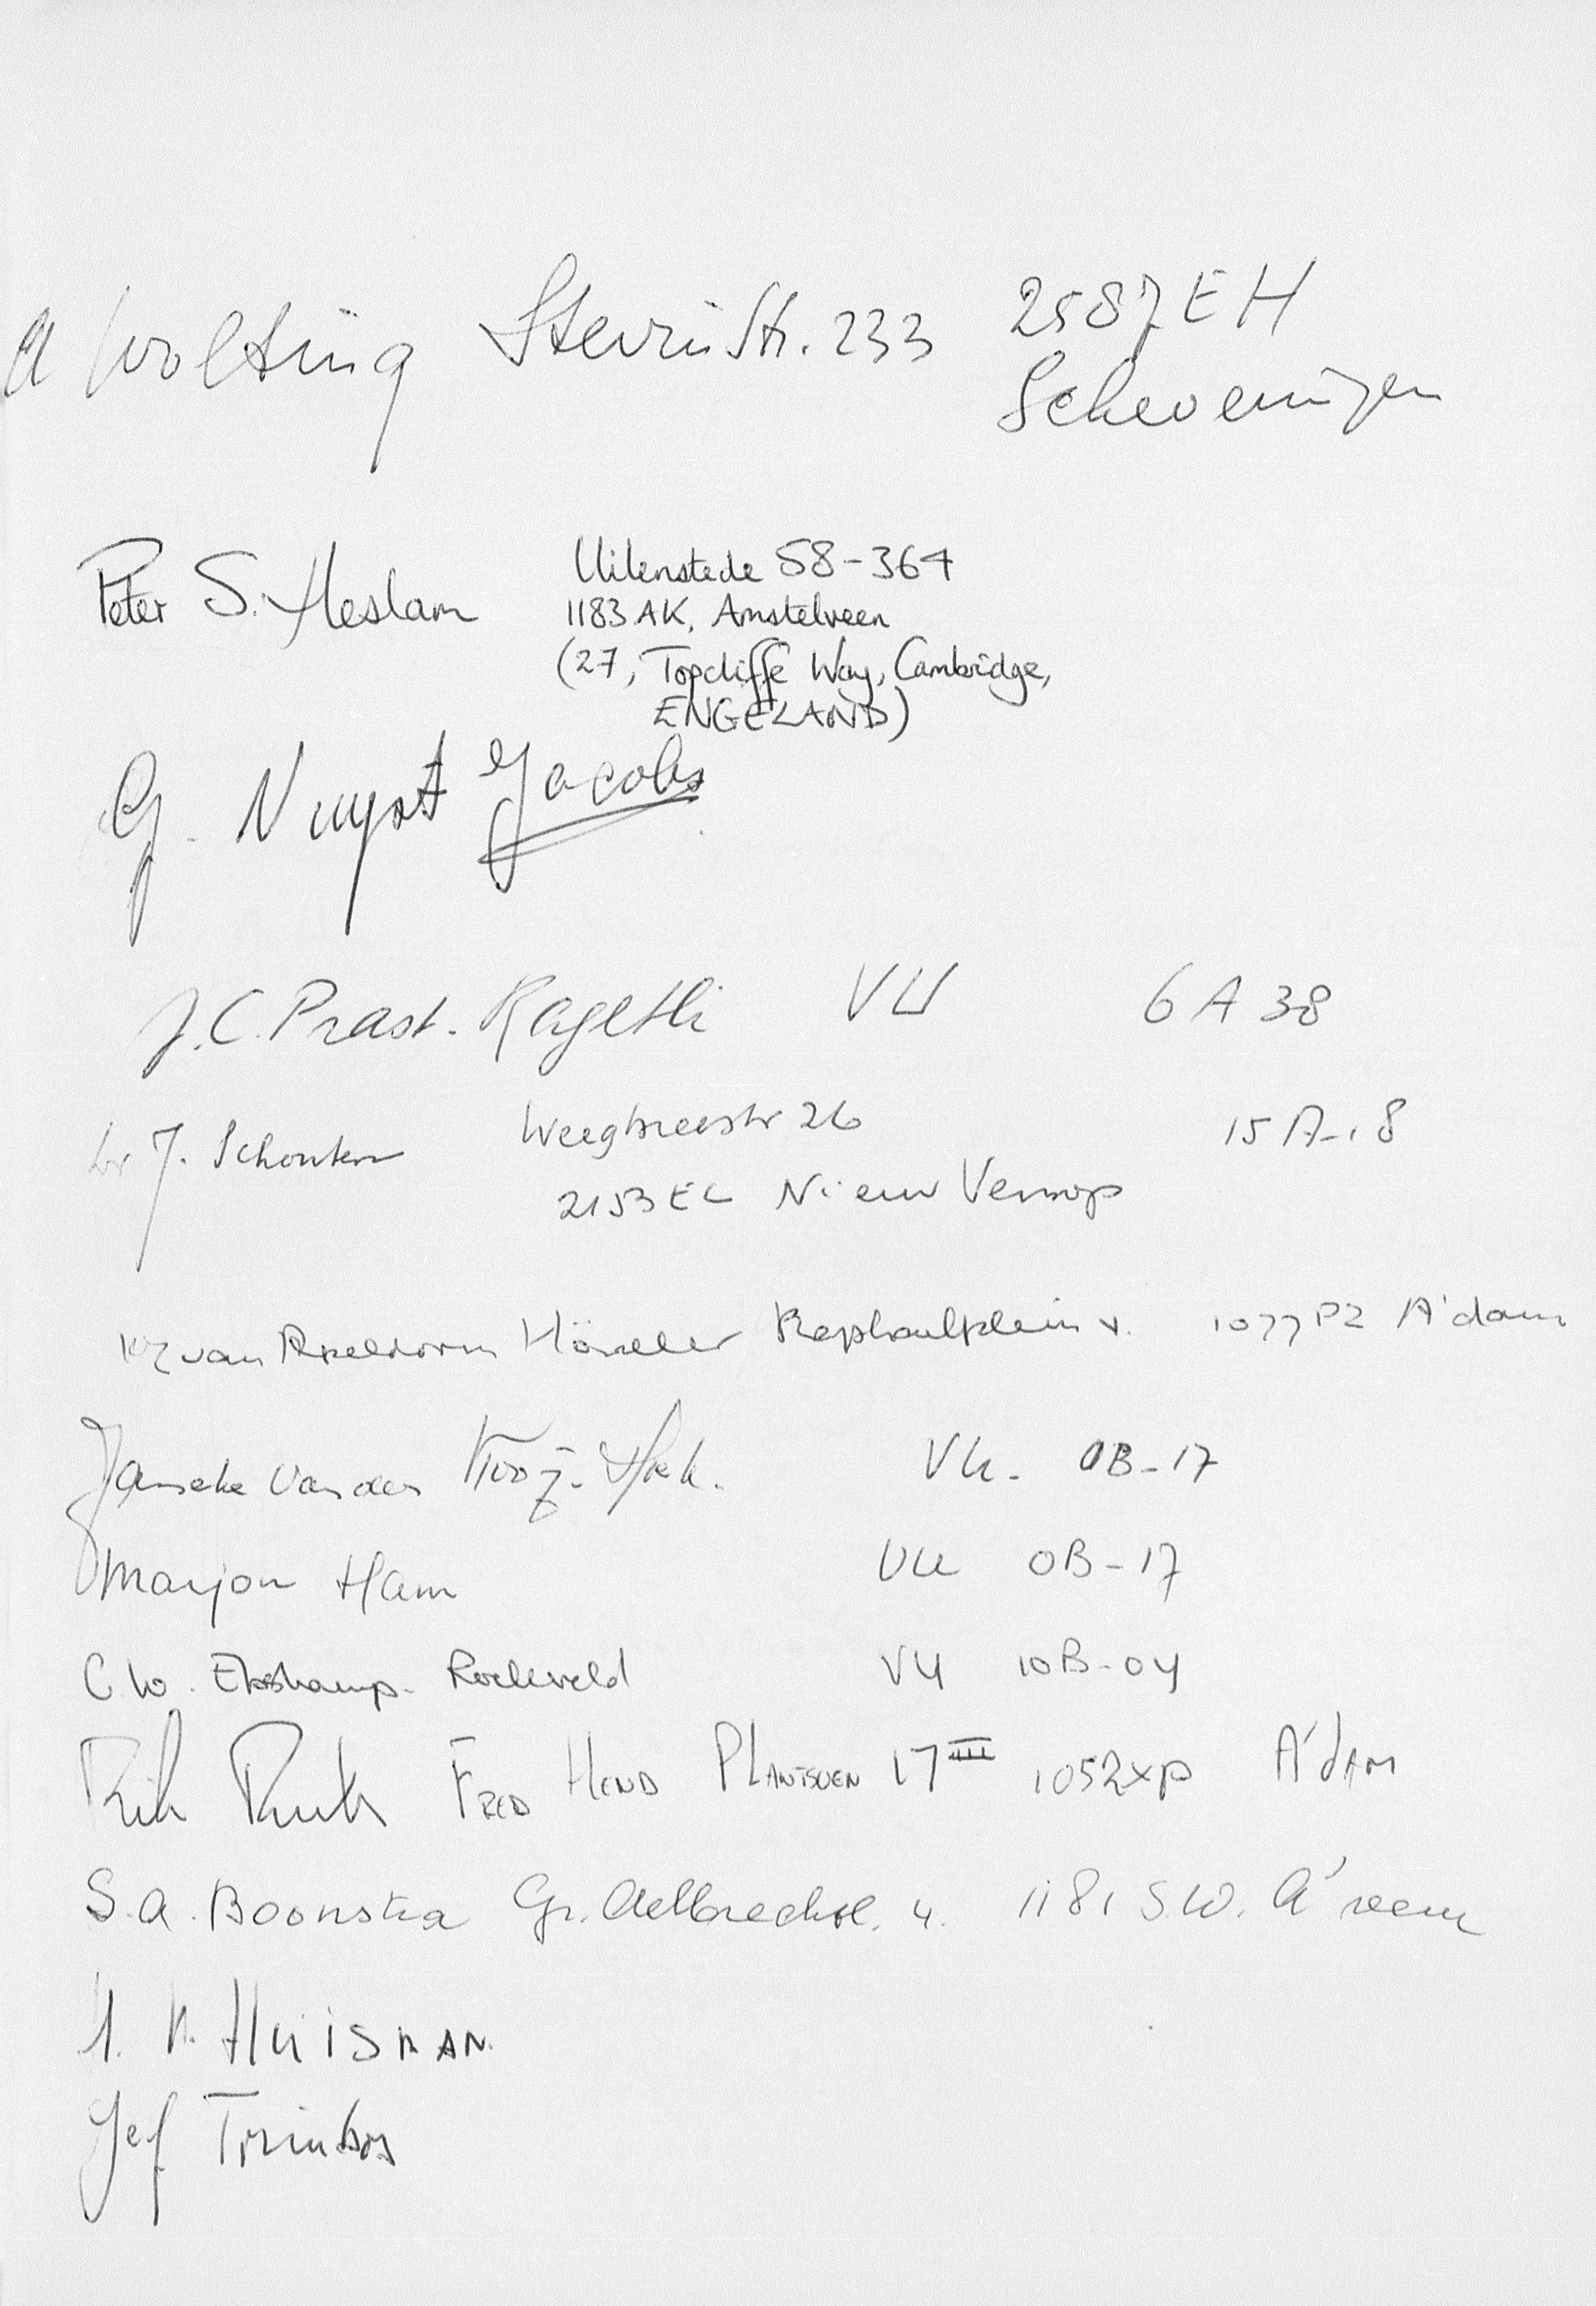 A Wolting Stevinstr. 233 2587 EH
Scheveningen
Peter S. Heslam Uilenstede 58-364
1183 AK, Amstelveen
(27, Topcliffe Way, Cambridge,
ENGELAND)
G. Nuyst Jacobs
J.C. Prast. Ragetli VU 6 A 38
J. Schouten Weegbreestr 26 15 A-18
2153 EC Nieuw Vennep
van Apeldorn Raphaelplein 1077 PZ A'dam
Janneke van der VU. 0B-17
Marjon Ham VU 0B-17
C.W. Roeleveld VU 10B-04
Rik FRED HEND PLANTSOEN 17 III 1052 XP A'DAM
S.A. Boonstra Gr. Aelbrechtl. 4. 1181 S.W. A'veen
HUISMAN.
Jef Trimbos